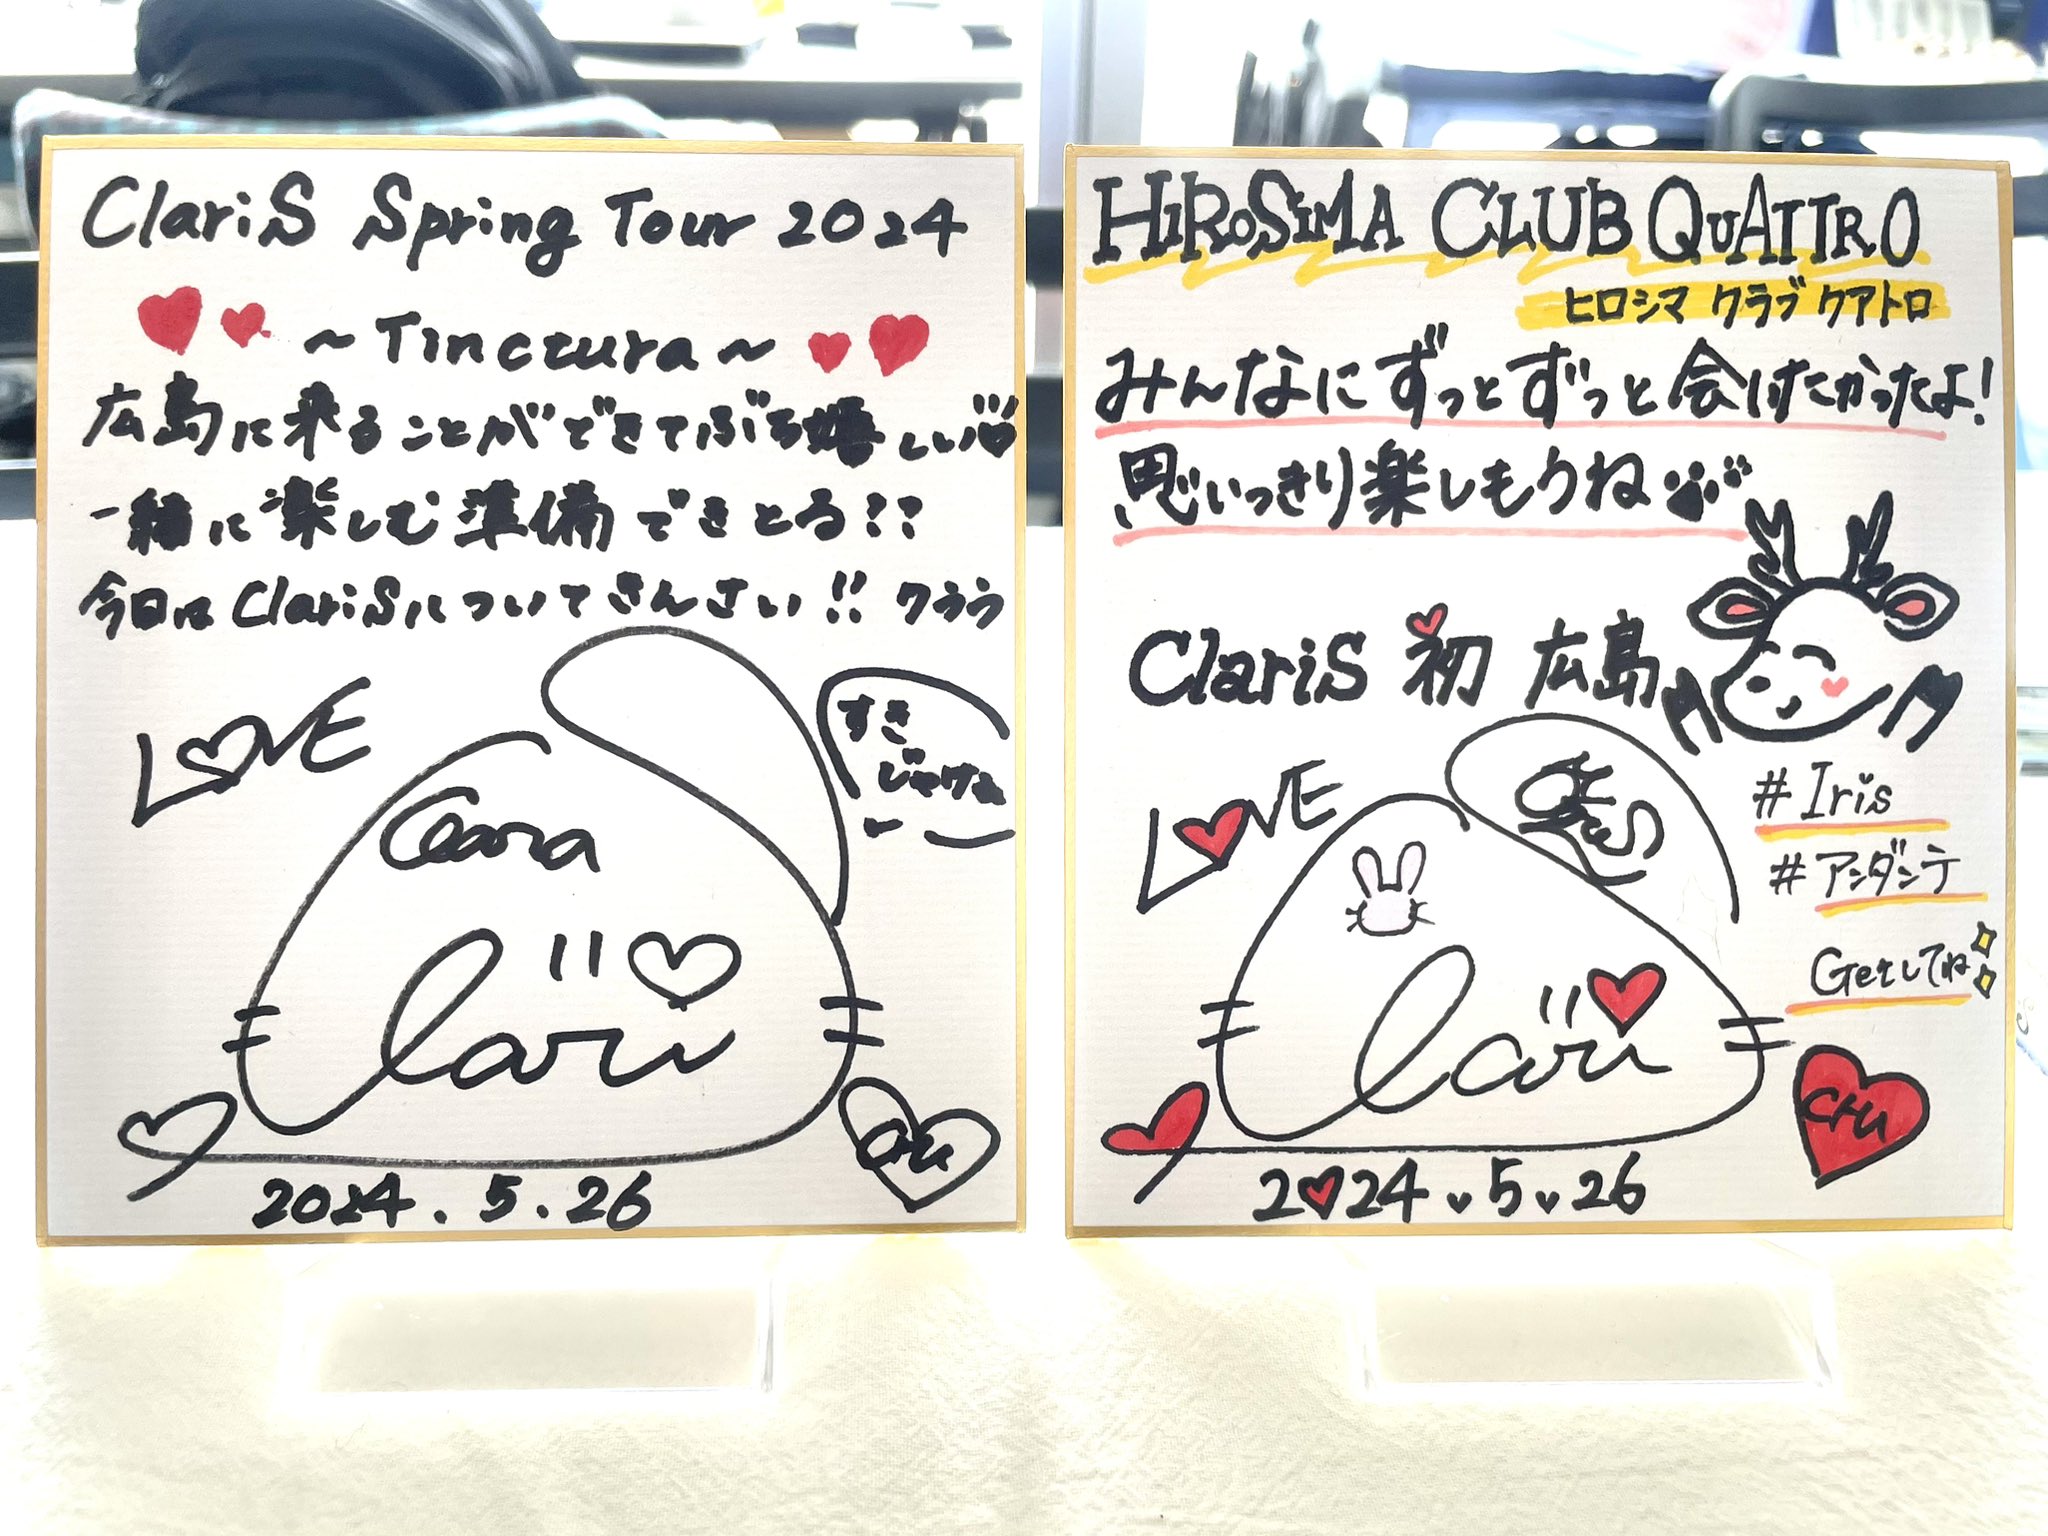 ClariS Spring Tour 2024
～Tinctura～
広島に来ることができてぶち嬉しい
一緒に楽しむ準備できとる??
今日はClariSについてきんさい!! クララ
LOVE
すき
じゃけぇ
Clara
Clari
CHU
2024.5.26
HIROSIMA CLUB QUATTRO
ヒロシマ クラブ クアトロ
みんなにずっとずっと会いたかったよ!
思いっきり楽しもうね
ClariS 初 広島
LOVE
#Iris
#アンダンテ
Getしてね
Clari
CHU
2024.5.26